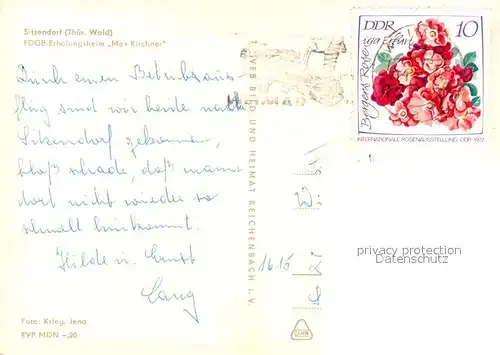 Sitzendorf (Thür. Wald)
FDGB-Erholungsheim „Max Kirchner"
Durch einen Betriebsaus-
flug sind wir heute nach
Sitzendorf gekommen,
bloß schade, daß man
dort nicht wieder so
schnell hinkommt.
Hilde u. Ernst
Lang
Foto: Krieg, Jena
EVP MDN -,20
VEB BILD UND HEIMAT REICHENBACH i. V.
1615
DDR
10
iga Erfurt
Bergers Rose
INTERNATIONALE ROSENAUSSTELLUNG DDR 1972
privacy protection
Datenschutz